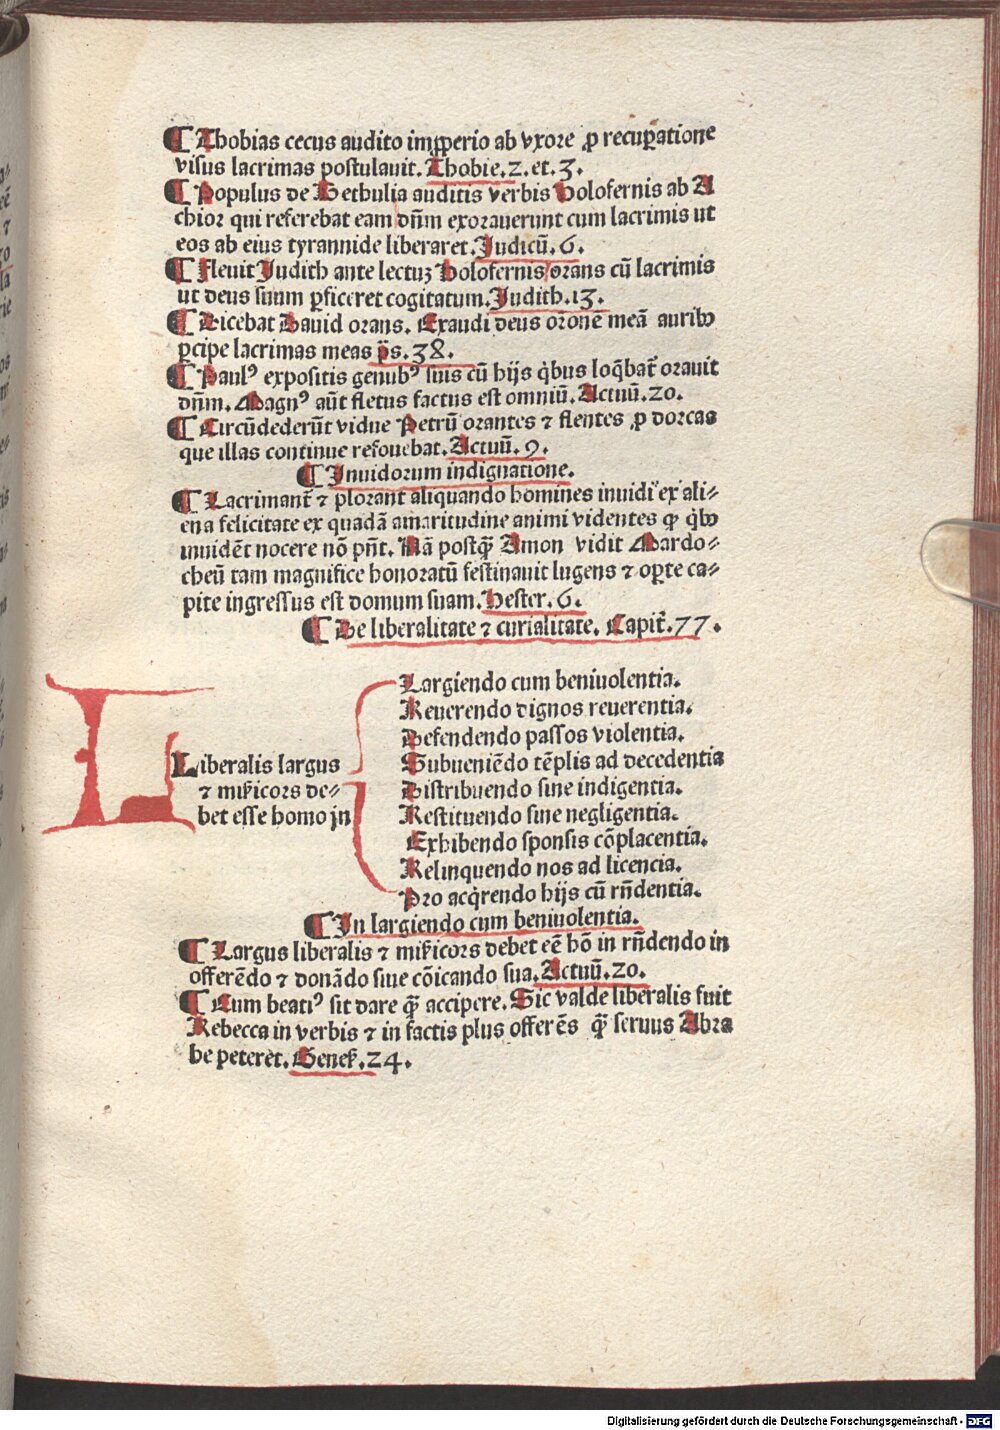 ¶ Thobias cecus audito imꝓperio ab vxore ꝓ recuꝑatione
visus lacrimas postulauit. Thobie. 2. et. 3.
¶ Populus de Bethulia auditis verbis Holofernis ab A
chior qui referebat eam dñm exorauerunt cum lacrimis ut
eos ab eius tyrannide liberaret. Judicū. 6.
¶ Fleuit Judith ante lectuꝫ Holofernis orans cū lacrimis
ut deus suum ꝑficeret cogitatum. Judith. 13.
¶ Dicebat Dauid orans. Exaudi deus orōnē meā auribꝰ
ꝑcipe lacrimas meas p̄s. 38.
¶ Paulꝰ expositis genubꝰ suis cū hijs q̇bus loq̇bat̄ orauit
dñm. Magnꝰ aūt fletus factus est omniū. Actuū. 20.
¶ Circūdederūt vidue Petrū orantes ⁊ flentes ꝓ dorcas
que illas continue refouebat. Actuū. 9.
¶ Inuidorum indignatione.
¶ Lacrimant̄ ⁊ plorant aliquando homines inuidi ex ali⸗
ena felicitate ex quadā amaritudine animi videntes ꝙ q̇bꝰ
inuidēt nocere nō pn̄t. Nā postq̄ꝫ Amon vidit Mardo⸗
cheū tam magnifice honoratū festinauit lugens ⁊ oꝑte ca⸗
pite ingressus est domum suam. Hester. 6.
¶ De liberalitate ⁊ curialitate. Capit̄. 77.
Largiendo cum beniuolentia.
Reuerendo dignos reuerentia.
Defendendo passos violentia.
Liberalis largus
⁊ mīcors de⸗
bet esse homo in
Subueniēdo tēplis ad decedentia
Distribuendo sine indigentia.
Restituendo sine negligentia.
Exhibendo sponsis cōplacentia.
Relinquendo nos ad licencia.
Pro acq̇rendo hijs cū rn̄dentia.
¶ In largiendo cum beniuolentia.
¶ Largus liberalis ⁊ mīcors debet eē hō in rn̄dendo in
offerēdo ⁊ donādo siue cōicando sua. Actuū. 20.
¶ Cum beatiꝰ sit dare q̄ꝫ accipere. Sic valde liberalis fuit
Rebecca in verbis ⁊ in factis plus offerēs q̄ꝫ seruus Abra
he peteret. Genes̄. 24.
Digitalisierung gefördert durch die Deutsche Forschungsgemeinschaft - DFG